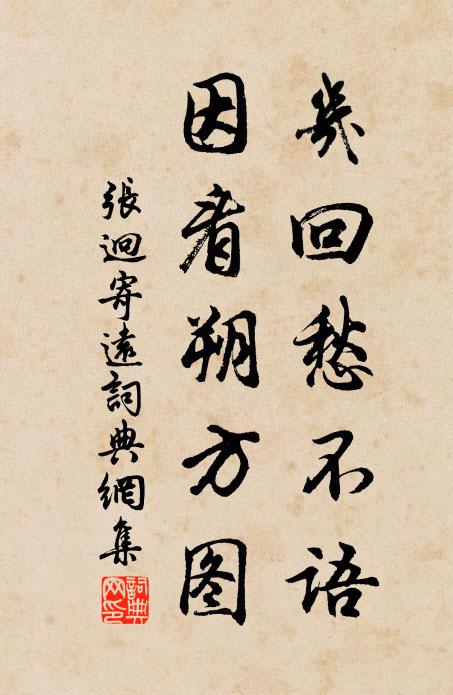 幾回愁不语
因看朔方图
張迥寄遠詞典網集
詞典網印